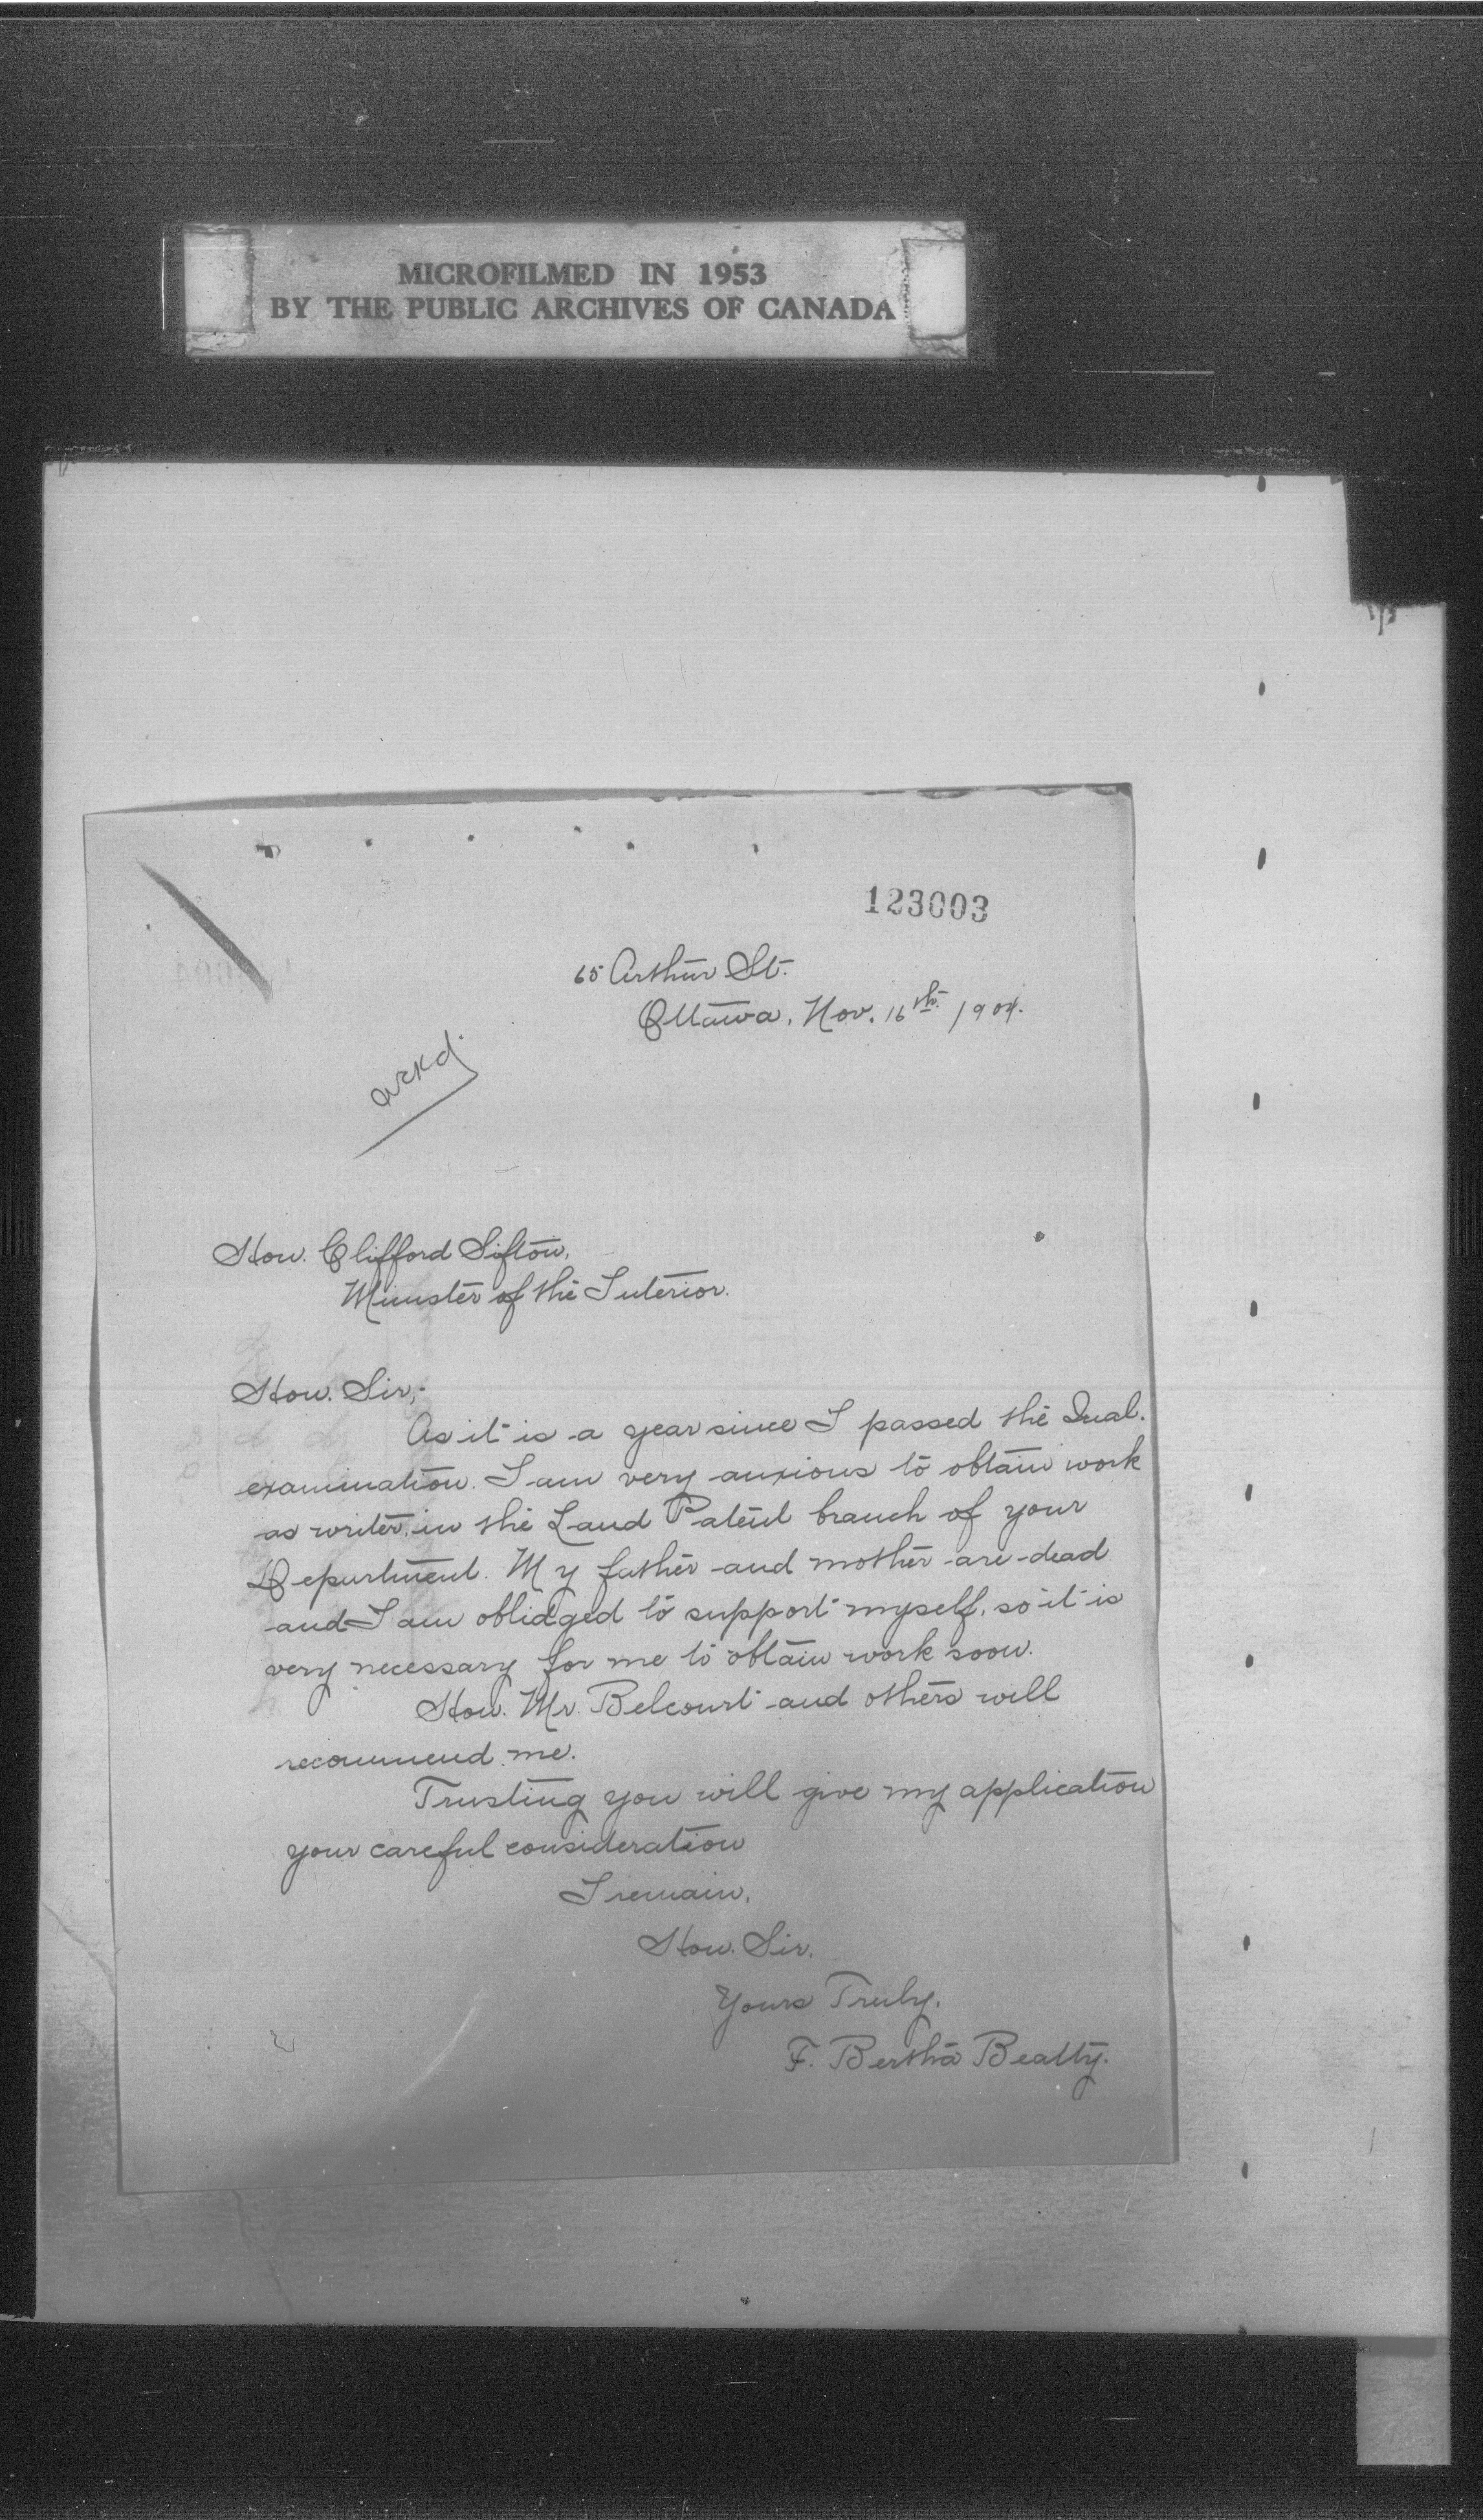 MICROFILMED IN 1953
BY THE PUBLIC ARCHIVES OF CANADA
123003
65 Arthur St.
Ottawa, Nov. 16th. 1904.
ackd.
Hon. Clifford Sifton,
Minister of the Interior.
Hon. Sir,-
As it is a year since I passed the Qual.
examination. I am very anxious to obtain work
as writer, in the Land Patent branch of your
Department. My father and mother are dead
and I am oblidged to support myself, so it is
very necessary for me to obtain work soon.
Hon. Mr. Belcourt and others will
recommend me.
Trusting you will give my application
your careful consideration
I remain,
Hon. Sir.
Yours Truly.
F. Bertha Beatty.